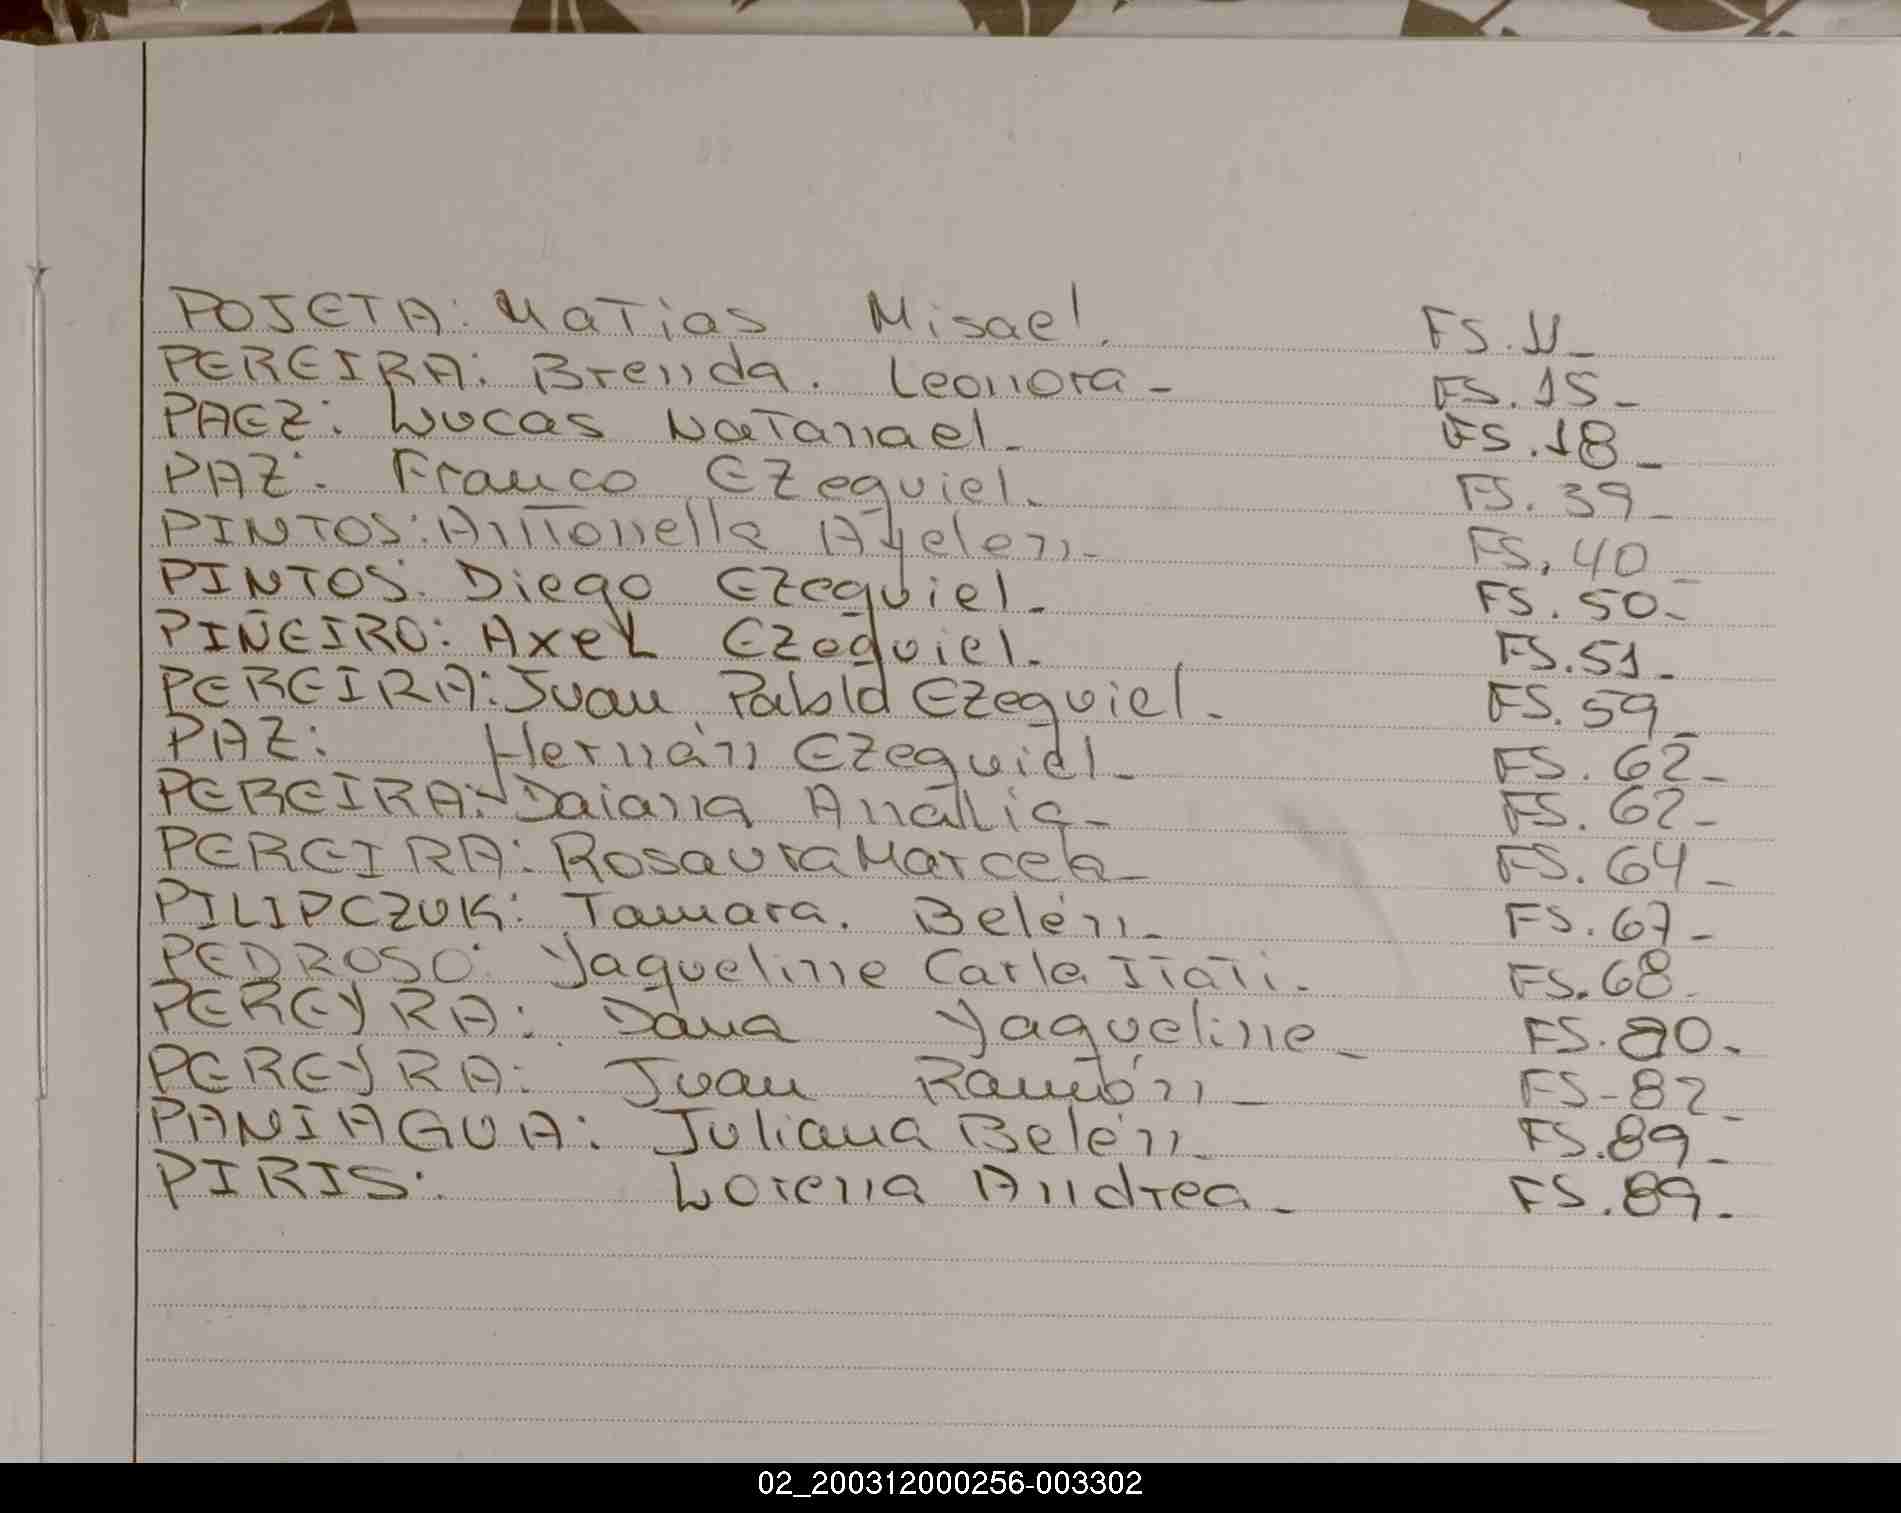 POJETA: Matias Misael. FS. 11-
PEREIRA: Brenda. Leonora- FS. 15-
PAEZ: Lucas Natanael- FS. 18-
PAZ: Franco Ezequiel- FS. 39-
PINTOS: Antonella Ayelen- FS. 40-
PINTOS: Diego Ezequiel- FS. 50-
PIÑEIRO: Axel Ezequiel- FS. 51-
PEREIRA: Juan Pablo Ezequiel- FS. 59-
PAZ: Hernán Ezequiel- FS. 62-
PEREIRA: Daiana Anália- FS. 62-
PEREIRA: Rosaura Marcela- FS. 64-
PILIPCZUK: Tamara. Belén- FS. 67-
PEDROSO: Yaqueline Carla Itati- FS. 68-
PEREYRA: Dana Yaqueline- FS. 80-
PEREYRA: Juan Ramón- FS-82-
PANIAGUA: Juliana Belén- FS. 89-
PIRIS: Lorena Andrea- FS. 89-
02_200312000256-003302